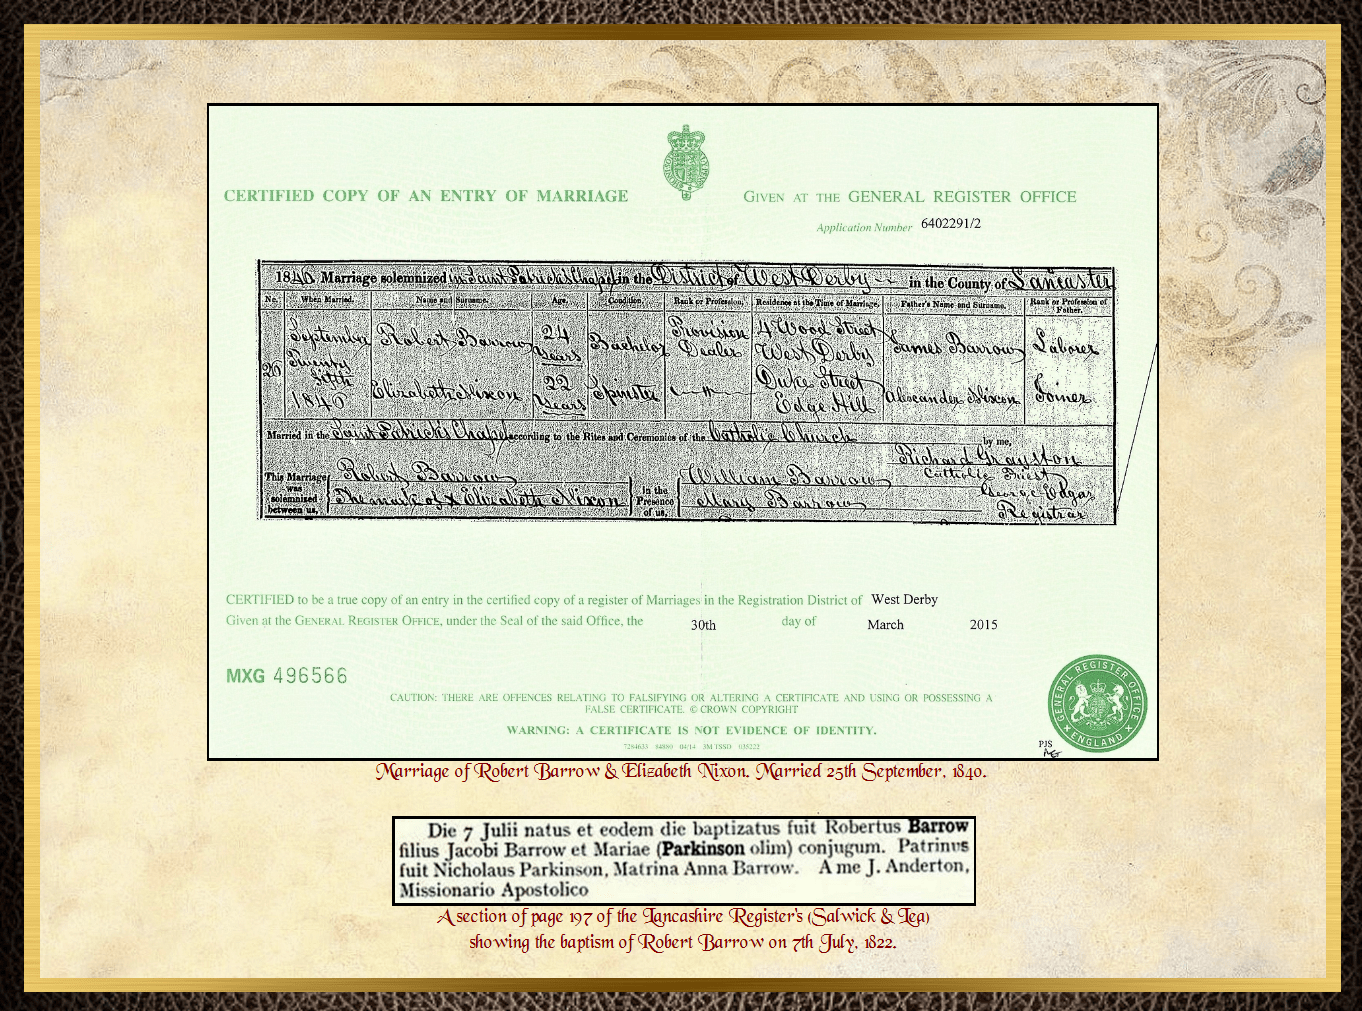 CERTIFIED COPY OF AN ENTRY OF MARRIAGE
GIVEN AT THE GENERAL REGISTER OFFICE
Application Number 6402291/2
1840 Marriage solemnized in Saint Patrick's Chapel in the District of West Derby in the County of Lancaster
No. When Married. Name and Surname. Age. Condition. Rank or Profession. Residence at the Time of Marriage. Father's Name and Surname. Rank or Profession of Father.
26 September Twenty Fifth 1840
Robert Barrow 24 years Bachelor Provision Dealer 4 Wood Street West Derby James Barrow Laborer
Elizabeth Nixon 22 Years Spinster Duke Street Edge Hill Alexander Nixon Joiner
Married in the Saint Patrick's Chapel according to the Rites and Ceremonies of the Catholic Church by me,
Richard Grayston
Catholic Priest
George Edgar
Registrar
This Marriage was solemnized between us, Robert Barrow
The mark of X Elizabeth Nixon
In the Presence of us, William Barrow
Mary Barrow
CERTIFIED to be a true copy of an entry in the certified copy of a register of Marriages in the Registration District of West Derby
Given at the GENERAL REGISTER OFFICE, under the Seal of the said Office, the 30th day of March 2015
MXG 496566
CAUTION: THERE ARE OFFENCES RELATING TO FALSIFYING OR ALTERING A CERTIFICATE AND USING OR POSSESSING A
FALSE CERTIFICATE. © CROWN COPYRIGHT
WARNING: A CERTIFICATE IS NOT EVIDENCE OF IDENTITY.
GENERAL REGISTER OFFICE
ENGLAND
PJS
Marriage of Robert Barrow & Elizabeth Nixon. Married 25th September, 1840.
Die 7 Julii natus et eodem die baptizatus fuit Robertus Barrow
filius Jacobi Barrow et Mariae (Parkinson olim) conjugum. Patrinus
fuit Nicholaus Parkinson, Matrina Anna Barrow. A me J. Anderton,
Missionario Apostolico
A section of page 197 of the Lancashire Register's (Salwick & Lea)
showing the baptism of Robert Barrow on 7th July, 1822.